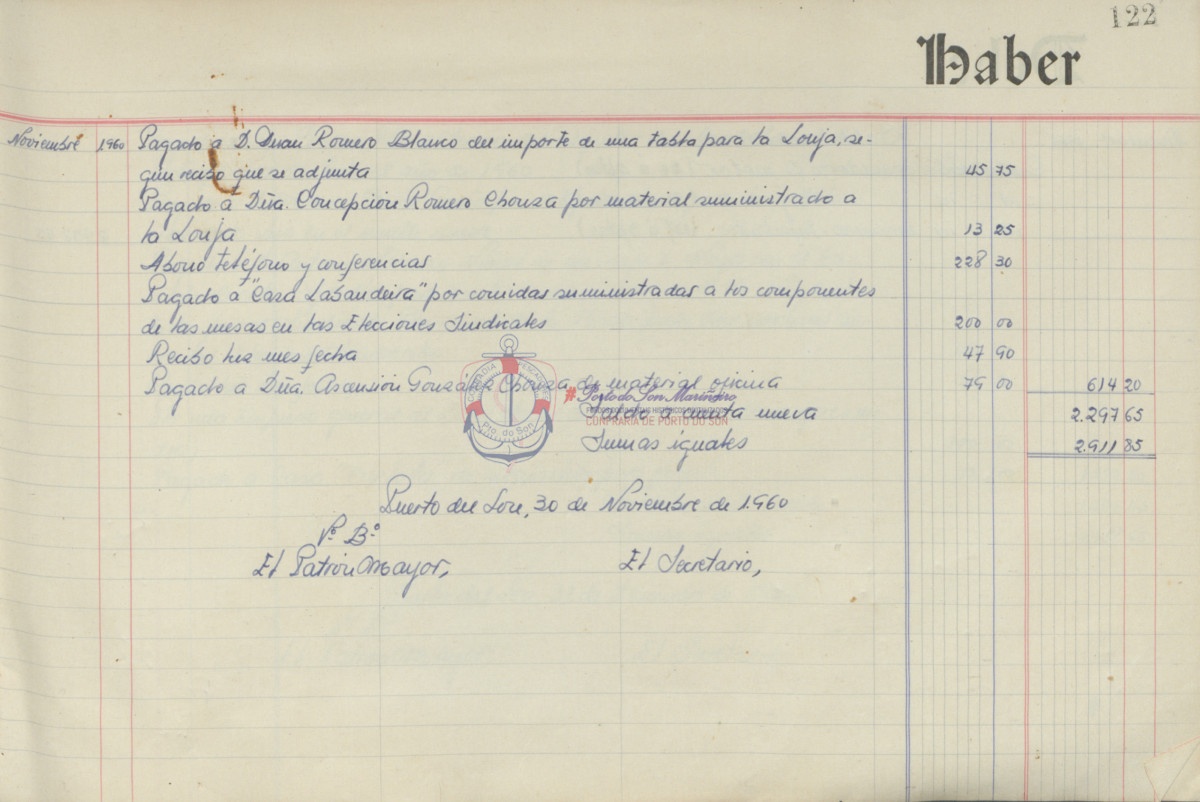 122
Haber
Noviembre 1960 Pagado a D. Juan Romero Blanco del importe de una tabla para la Lonja, se-
gún recibo que se adjunta 45 75
Pagado a Dña. Concepción Romero Chouza por material suministrado a
la Lonja 13 25
Abono teléfono y conferencias 228 30
Pagado a "Casa Labandeira" por comidas suministradas a los componentes
de las mesas en las Elecciones Sindicales 200 00
Recibo luz mes fecha 47 90
Pagado a Dña. Ascensión González Chouza de material oficina 79 00 614 20
Saldo a cuenta nueva 2.297 65
Sumas iguales 2.911 85
Puerto del Son, 30 de Noviembre de 1.960
Vº. Bº.
El Patrón Mayor, El Secretario,
Pto. do Son
#Porto do Son Mariñeiro
CONFRARIA DE PORTO DO SON